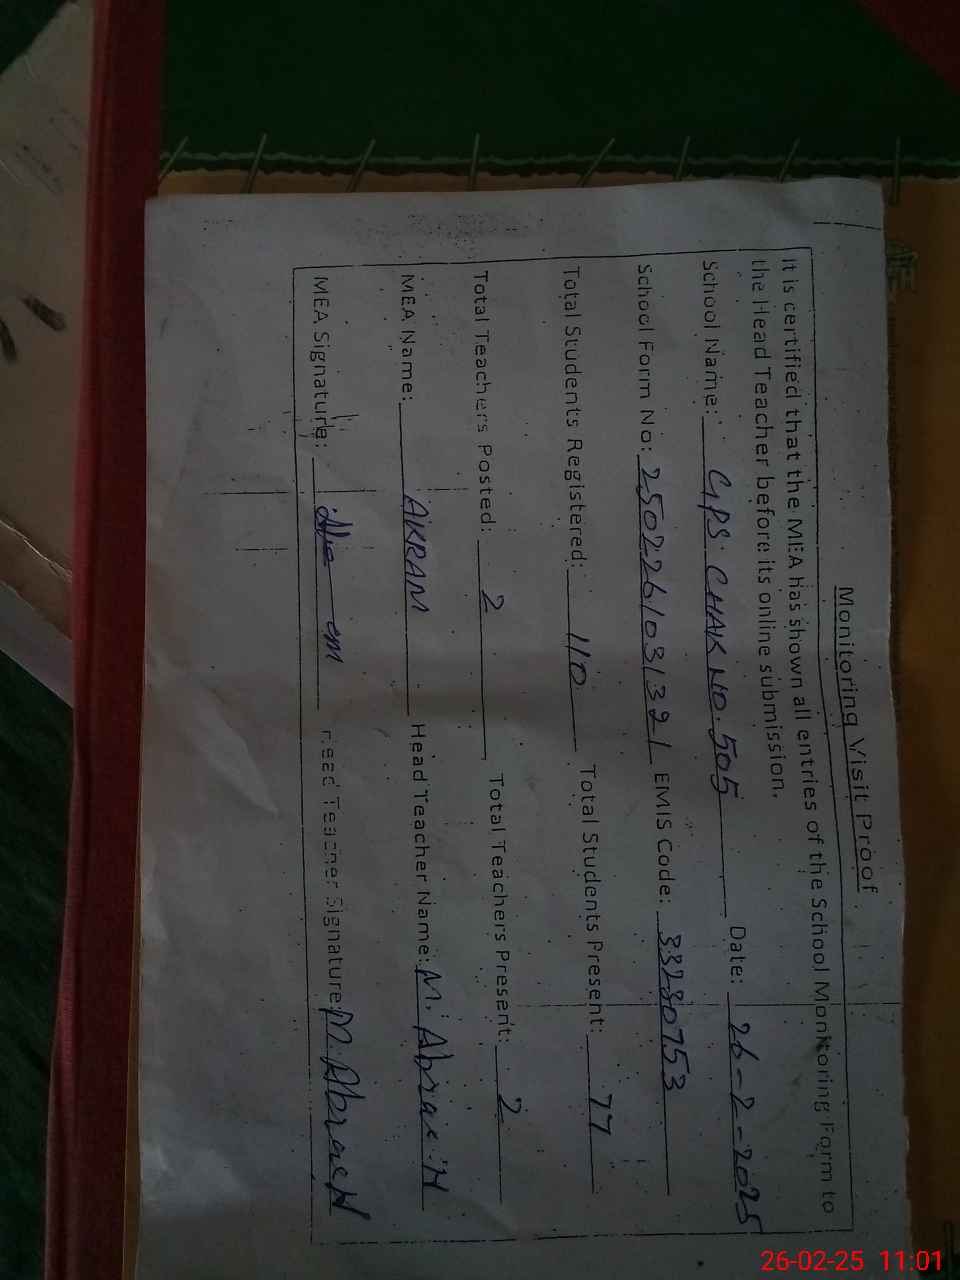 Monitoring Visit Proof
It is certified that the MEA has shown all entries of the School Monitoring Form to
the Head Teacher before its online submission.
School Name: GPS. CHAK NO. 505 Date: 26-2-2025
School Form No: 2502261031321 EMIS Code: 33280753
Total Students Registered: 110 Total Students Present: 77
Total Teachers Posted: 2 Total Teachers Present: 2
MEA Name: AKRAM Head Teacher Name: M.
MEA Signature: Head Teacher Signature: M.
26-02-25 11:01